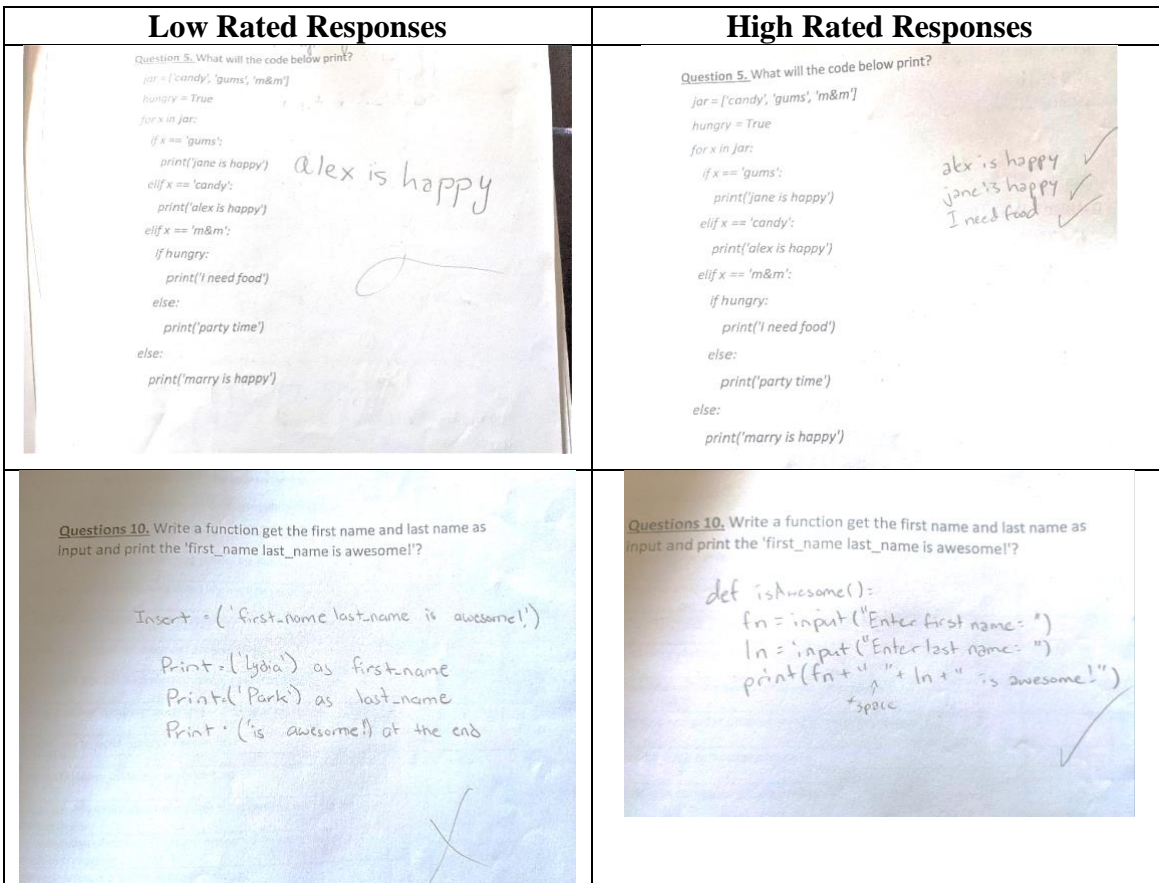 Low Rated Responses
High Rated Responses
Question 5. What will the code below print?
jar = ['candy', 'gums', 'm&m']
hungry = True
for x in jar:
if x == 'gums':
print('jane is happy')
elif x == 'candy':
print('alex is happy')
elif x == 'm&m':
if hungry:
print('I need food')
else:
print('party time')
else:
print('marry is happy')
alex is happy
Question 5. What will the code below print?
jar = ['candy', 'gums', 'm&m']
hungry = True
for x in jar:
if x == 'gums':
print('jane is happy')
elif x == 'candy':
print('alex is happy')
elif x == 'm&m':
if hungry:
print('I need food')
else:
print('party time')
else:
print('marry is happy')
alex is happy
jane is happy
I need food
Questions 10. Write a function get the first name and last name as
input and print the 'first_name last_name is awesome!'?
Insert = ('first_name last_name is awesome!')
Print = ('Lydia') as first_name
Print = ('Park') as last_name
Print = ('is awesome!) at the end
Questions 10. Write a function get the first name and last name as
input and print the 'first_name last_name is awesome!'?
def isAwesome():
fn = input("Enter first name: ")
ln = input("Enter last name: ")
print(fn + " " + ln + " is awesome!")
*space